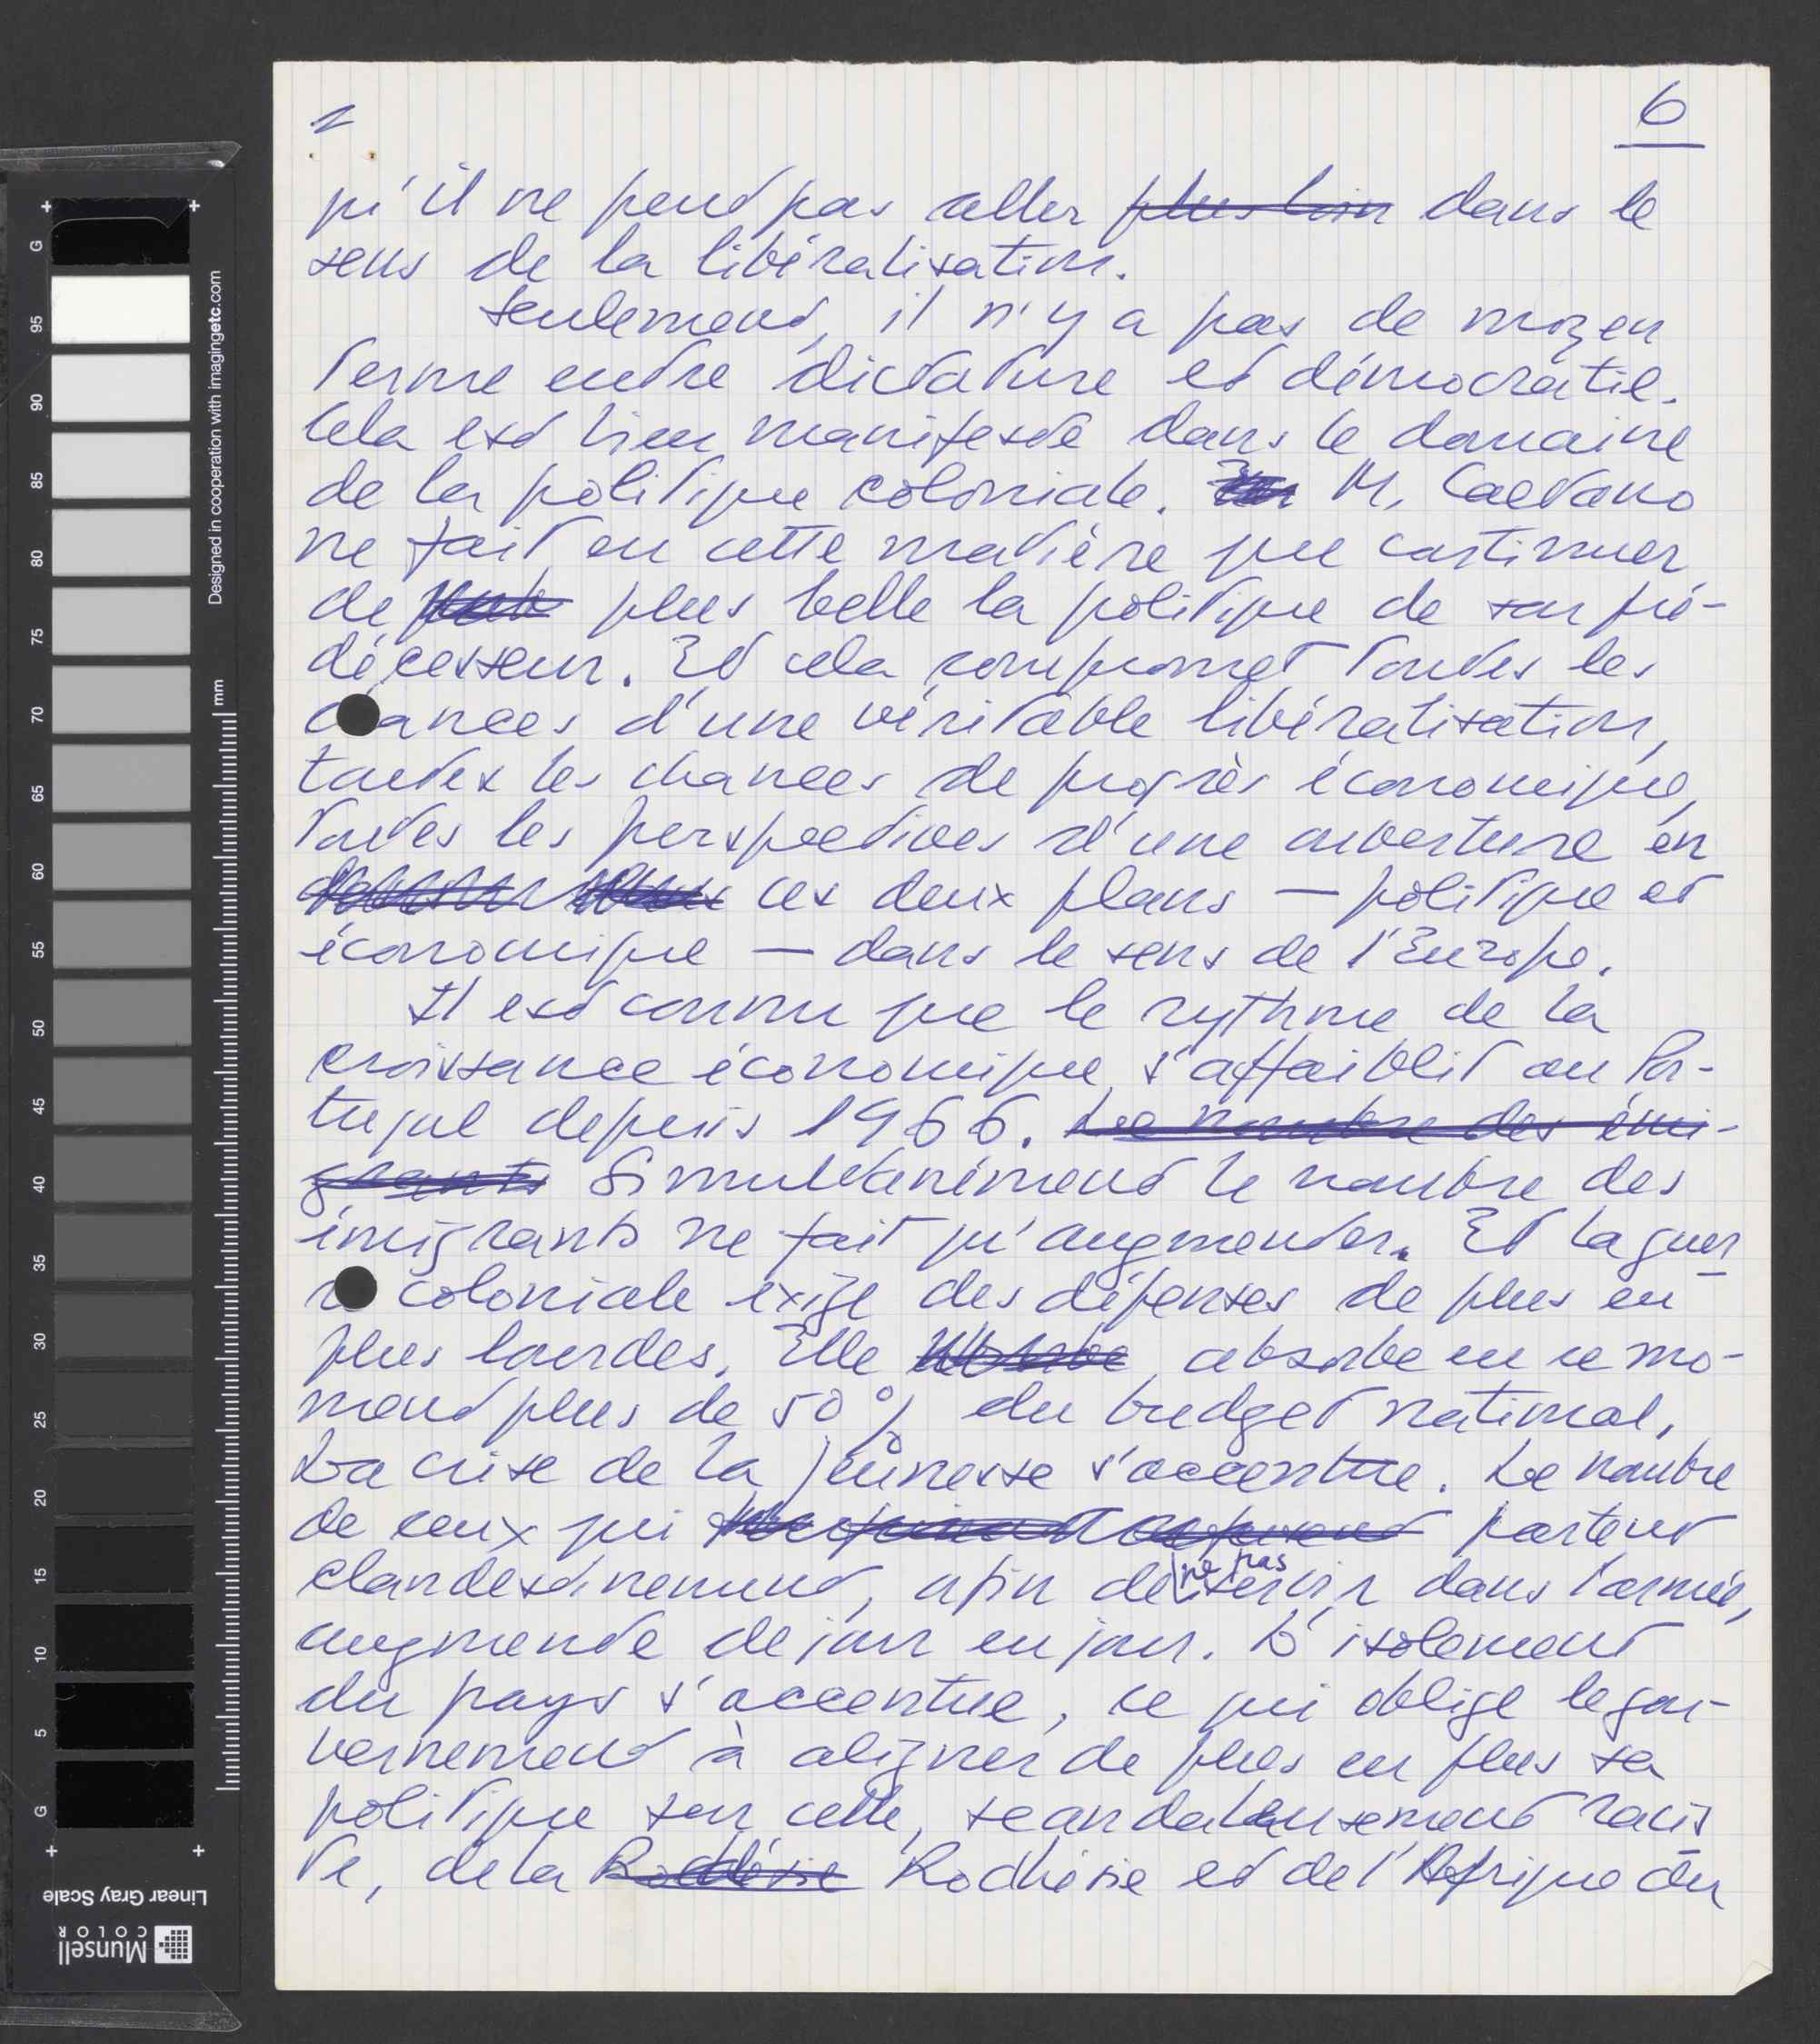 6
qu'il ne peut pas aller plus loin dans le
sens de la libéralisation.
Seulement, il n'y a pas de moyen
terme entre dictature et démocratie.
Cela est bien manifeste dans le domaine
de la politique coloniale. M. Caetano
ne fait en cette matière que continuer
de plus belle la politique de son pré-
décesseur. Et cela compromet toutes les
chances d'une véritable libéralisation,
toutes les chances de progrès économique,
toutes les perspectives d'une ouverture en
ces deux plans — politique et
économique — dans le sens de l'Europe.
Il est connu que le rythme de la
croissance économique s'affaiblit au Por-
tugal depuis 1966. Le nombre des émi-
grants Simultanément le nombre des
émigrants ne fait qu'augmenter. Et la guer
re coloniale exige des dépenses de plus en
plus lourdes. Elle absorbe en ce mo-
ment plus de 50% du budget national.
La crise de la jeunesse s'accentue. Le nombre
de ceux qui partent
clandestinement, afin de ne pas servir dans l'armée,
augmente de jour en jour. L'isolement
du pays s'accentue, ce qui oblige le gou-
vernement à aligner de plus en plus sa
politique sur celle, scandaleusement racis
te, de la Rodhésie et de l'Afrique du
G
95
90
85
80
75
70
65
60
55
50
45
40
35
30
25
20
15
10
5
G
mm
Designed in cooperation with imagingetc.com
Linear Gray Scale
Munsell
COLOR